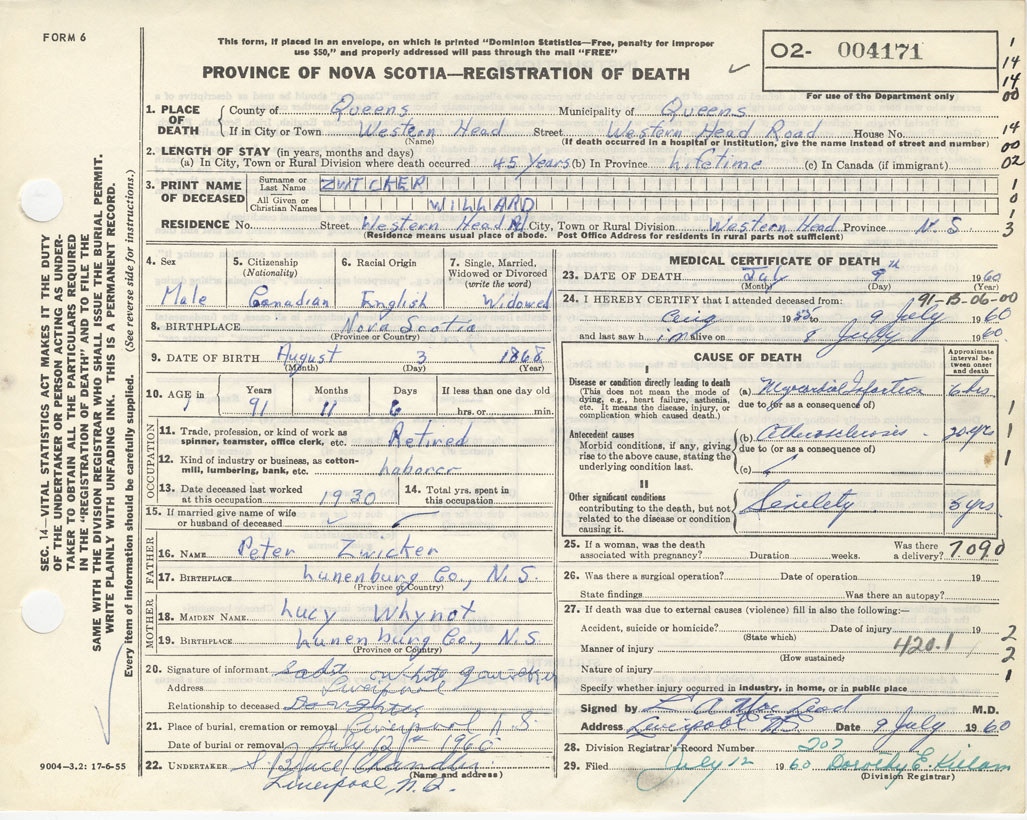 FORM 6
This form, if placed in an envelope, on which is printed "Dominion Statistics—Free, penalty for improper
use $50," and properly addressed will pass through the mail "FREE"
O2- 004171
For use of the Department only
PROVINCE OF NOVA SCOTIA—REGISTRATION OF DEATH
1. PLACE OF DEATH County of Queens Municipality of Queens
If in City or Town Western Head Street Western Head Road House No.
(Name) (If death occurred in a hospital or institution, give the name instead of street and number)
2. LENGTH OF STAY (in years, months and days)
(a) In City, Town or Rural Division where death occurred 45 years (b) In Province Lifetime (c) In Canada (if immigrant)
3. PRINT NAME OF DECEASED Surname or Last Name ZWICKER
All Given or Christian Names WILLARD
RESIDENCE No. Street Western Head R City, Town or Rural Division Western Head Province N.S
(Residence means usual place of abode. Post Office Address for residents in rural parts not sufficient)
4. Sex Male
5. Citizenship (Nationality) Canadian
6. Racial Origin English
7. Single, Married, Widowed or Divorced (write the word) Widowed
8. BIRTHPLACE Nova Scotia
(Province or Country)
9. DATE OF BIRTH August 3 1868
(Month) (Day) (Year)
10. AGE in Years 91 Months 11 Days 6 If less than one day old hrs. or min.
OCCUPATION
11. Trade, profession or kind of work as spinner, teamster, office clerk, etc. Retired
12. Kind of industry or business, as cotton-mill, lumbering, bank, etc. Laborer
13. Date deceased last worked at this occupation 1930
14. Total yrs. spent in this occupation
15. If married give name of wife or husband of deceased
FATHER
16. NAME Peter Zwicker
17. BIRTHPLACE Lunenburg Co, N.S.
(Province or Country)
MOTHER
18. MAIDEN NAME Lucy Whynot
19. BIRTHPLACE Lunenburg Co, N.S.
(Province or Country)
20. Signature of informant
Address Liverpool
Relationship to deceased Daughter
21. Place of burial, cremation or removal Liverpool N.S
Date of burial or removal July 12th 1960
22. UNDERTAKER S Bruce Chandler
(Name and address)
Liverpool, N.S.
9004—3.2: 17-6-55
MEDICAL CERTIFICATE OF DEATH
23. DATE OF DEATH July 9th 1960
(Month) (Day)
24. I HEREBY CERTIFY that I attended deceased from: 91-B-06-00
Aug 19 to 9 July 1960
and last saw h im alive on 8 July 1960
CAUSE OF DEATH
Approximate interval between onset and death
I
Disease or condition directly leading to death
(This does not mean the mode of dying, e.g., heart failure, asthenia, etc. It means the disease, injury, or complication which caused death.)
(a) Myocardial Infarction 6 hrs
due to (or as a consequence of)
Antecedent causes
Morbid conditions, if any, giving rise to the above cause, stating the underlying condition last.
(b) Atherosclerosis 20 yrs
due to (or as a consequence of)
(c)
II
Other significant conditions contributing to the death, but not related to the disease or condition causing it.
Senility 5 yrs
25. If a woman, was the death associated with pregnancy? Duration weeks. Was there a delivery? 7090
26. Was there a surgical operation? Date of operation 19
State findings Was there an autopsy?
27. If death was due to external causes (violence) fill in also the following:—
Accident, suicide or homicide? Date of injury 19
(State which)
Manner of injury 420.1
(How sustained)
Nature of injury
Specify whether injury occurred in industry, in home, or in public place
Signed by M.D.
Address Liverpool NS Date 9 July 1960
28. Division Registrar's Record Number 207
29. Filed July 12 1960 Dorothy E. Killam
(Division Registrar)
SEC. 14—VITAL STATISTICS ACT MAKES IT THE DUTY
OF THE UNDERTAKER OR PERSON ACTING AS UNDER-
TAKER TO OBTAIN ALL THE PARTICULARS REQUIRED
IN THE "REGISTRATION OF DEATH" AND TO FILE THE
SAME WITH THE DIVISION REGISTRAR WHO SHALL ISSUE THE BURIAL PERMIT.
WRITE PLAINLY WITH UNFADING INK. THIS IS A PERMANENT RECORD.
Every item of information should be carefully supplied. (See reverse side for instructions.)
1
14
14
00
14
00
02
1
0
1
3
1
1
1
2
2
1